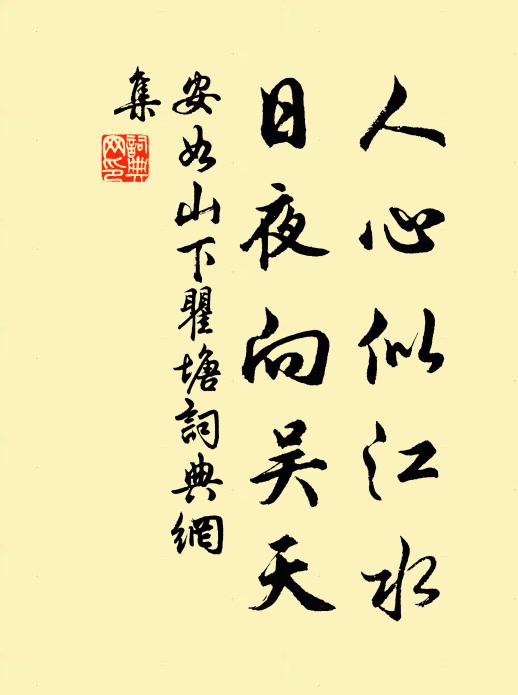 人心似江水
日夜向吴天
安如山下瞿塘詞典網
集
詞典網印